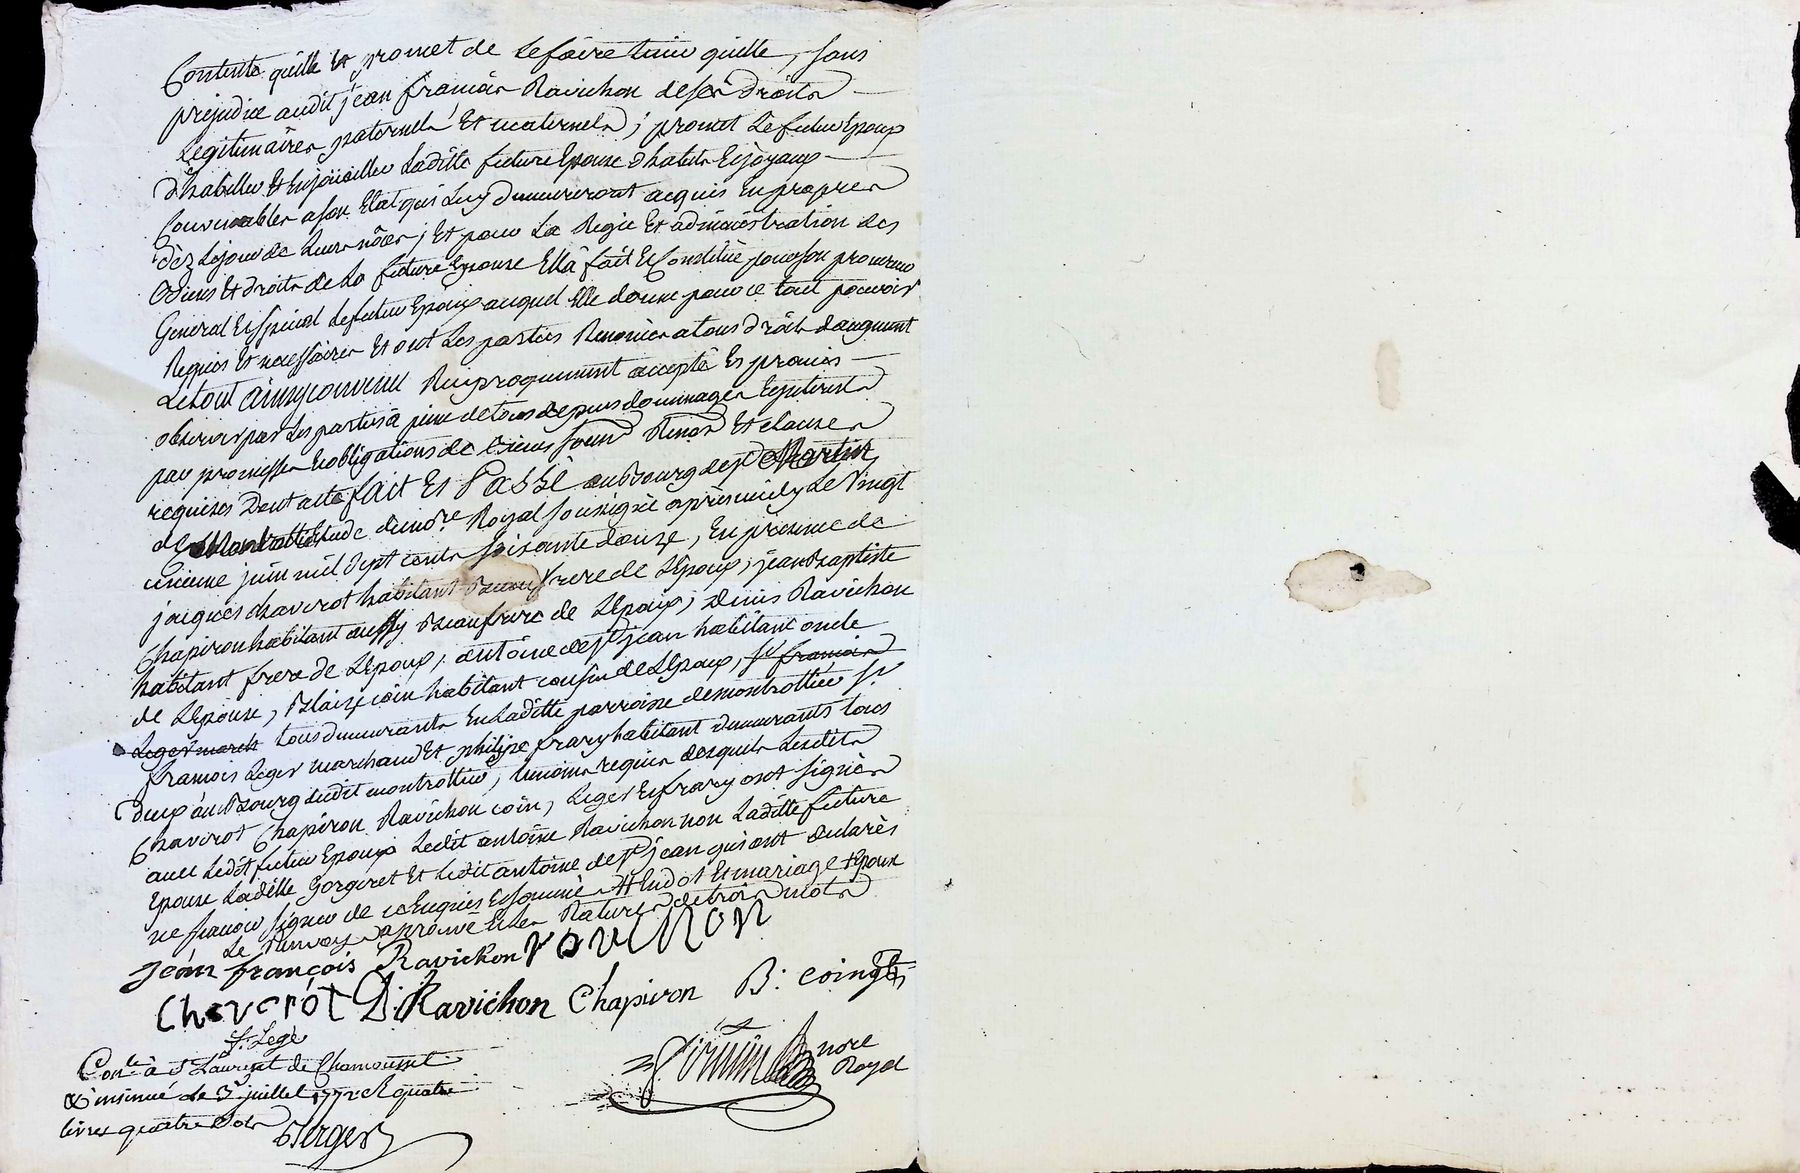 Contente quille Et promet de le faire tenir quitte, sans
prejudice audit jean francois Ravichon deses droits
Legitimaires paternels Et maternels; promet Le futur Epoux
d'habiller Et Enjoüailler Laditte future Epouse d'habits Et joyaux
Convenables a son Etat qui Luy demeureront acquis En propres
dèz Le jour de Leurs nôces; Et pour La Regie Et administration des
Biens Et droits de La future Epouse Ella fait Et Constitüé pour son procureur
General Et special Le futur Epoux auquel Elle donne pour ce tout pouvoir
Requis Et necessaires Et ont Les parties Renoncer a tous droits daugment
Le tout ainsy convenu Reciproquement accepté Et promis
observer par Les parties à peine de tous depens dommages Et interests
par promesses Et obligations de Biens soum. Renon. Et clauses
requises Dont acte fait Et Passé au Bourg de st Martin
de Montrottier Etude du nore. Royal soussigné après midy Le Vingt
unieme juin mil sept cents soixante douze, En presence de
jacques chaverot habitant Beaufrere de L'Epoux, jean Baptiste
Chapiron habitant aussy Beaufrere de L'Epoux; denis Ravichon
habitant frere de L'Epoux, antoine de st jean habitant oncle
de L'Epouse, Blaize coin habitant cousin de L'Epoux, sr. francois
Leger march tous demeurants En Laditte parroisse de montrottier sr.
francois Leger marchand Et philipe frary habitant demeurants tous
deux au Bourg dudit montrottier, temoins requis desquels Lesdits
Chaverot Chapiron Ravichon coin, Leger Et frary ont signés
avec Ledit futur Epoux Ledit antoine Ravichon non Laditte future
Epouse Laditte Gorgeret Et Ledit antoine de st jean qui ont declarés
ne scavoir signer de ce Enquis Et sommés # Endot Et mariage + Epoux
Le Renvoy approuvé Et Les Ratures de trois mots
jean francois Ravichon ravichon
Chaverot D. Ravichon Chapiron B: coingt
f. Legé
nore
Royal
Conlé à st Laurent de Chamousset
& insinué le 3e juillet 1772 R quatre
livres quatre sols
Berger